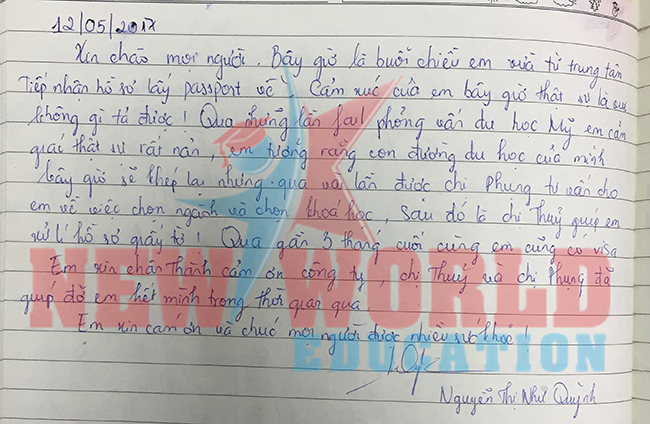 12/05/2017
Xin chào mọi người. Bây giờ là buổi chiều em vừa từ trung tâm
Tiếp nhận hồ sơ lấy passport về. Cảm xúc của em bây giờ thật sự là vui
không gì tả được! Qua những lần fail phỏng vấn du học Mỹ em cảm
giác thật sự rất nản, em tưởng rằng con đường du học của mình
bây giờ sẽ khép lại nhưng qua vài lần được chị Phụng tư vấn cho
em về việc chọn ngành và chọn khoá học, sau đó là chị Thuỷ giúp em
xử lí hồ sơ giấy tờ! Qua gần 3 tháng cuối cùng em cũng có visa
Em xin chân thành cảm ơn công ty, chị Thuỷ và chị Phụng đã
giúp đỡ em hết mình trong thời gian qua
Em xin cảm ơn và chúc mọi người được nhiều sức khoẻ!
Nguyễn Thị Như Quỳnh
NEW WORLD
EDUCATION